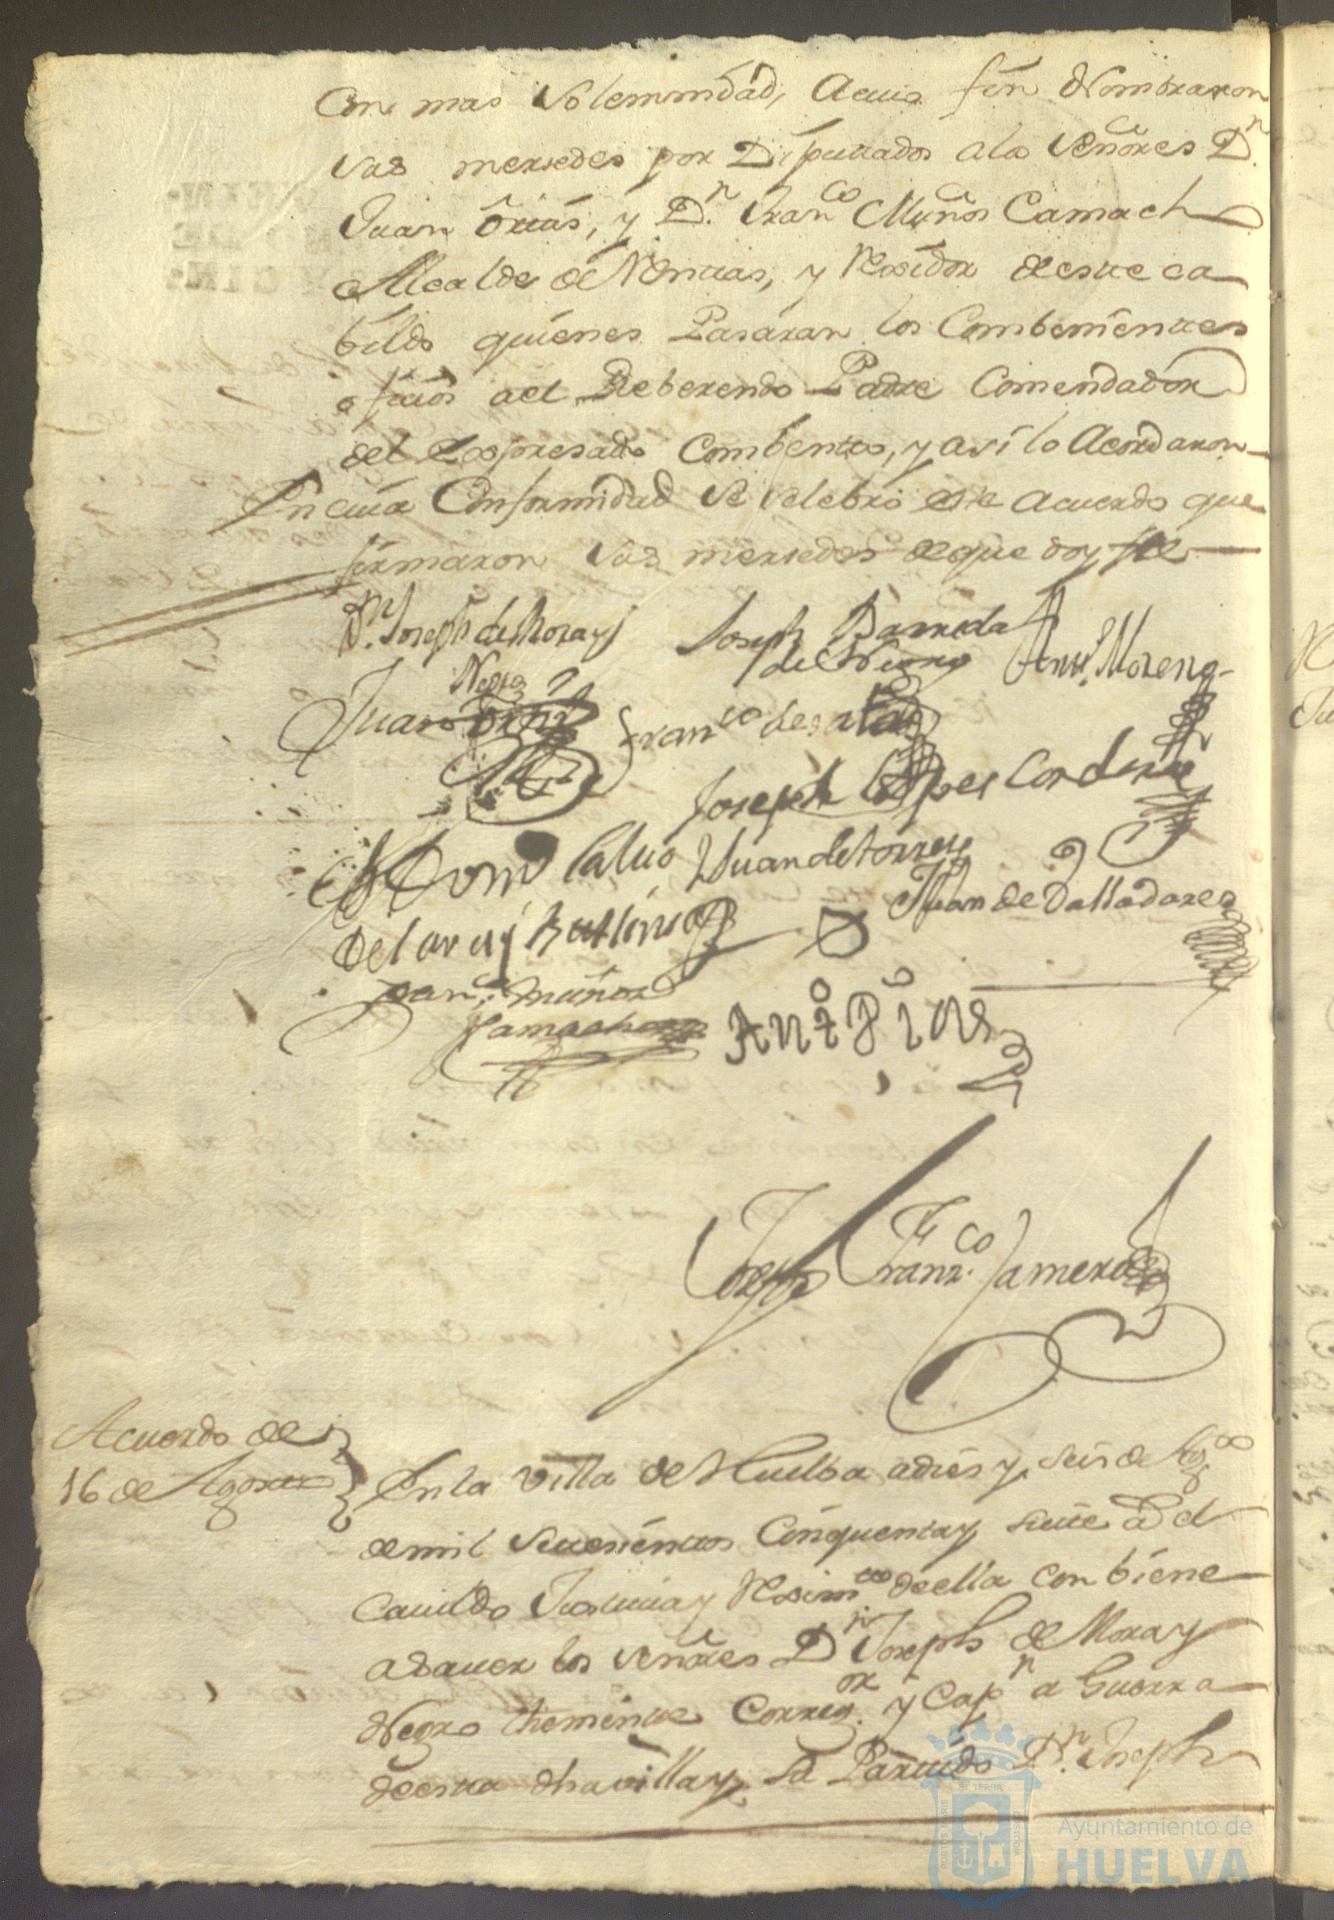 Con mas Solemnidad, Acuio fin Nombraron
Sus mersedes por Diputados a los Señores Dn.
Juan Ortis, y Dn. Franco Muños Camacho
Alcalde de Rentas, y Rexidor de este ca
bildo quienes Pasaran los Combenientes
ofisios a el Reberendo Padre Comendador
del Expresado Combento, y asi lo Acordaron
En cuia Conformidad Se selebró este Acuerdo que
firmaron Sus mersedes de que doy fee
Dn. Joseph de Mora y
Negro
Joseph Barreda
Antt. Moreno
Juan Ortiz
Franco de
Joseph Lopes Cordero
Domo Calvo
Juan de torres
Juan de Valladares
Franco Muños
Camacho
Anto Pino
Joseph Franco. Jamero
Acuerdo de
16 de Agosto
En la Villa de Huelba a dies y seis de Agto
de mil Setesientos Cinquenta y siete a. el
Cauildo Justicia y Reximto de ella conbiene
a sauer los Señores Dn Joseph de Mora y
Negro theniente Corregor. y Capn a Guerra
de esta dha villa y su Partido Dn. Joseph
Ayuntamiento de
HUELVA